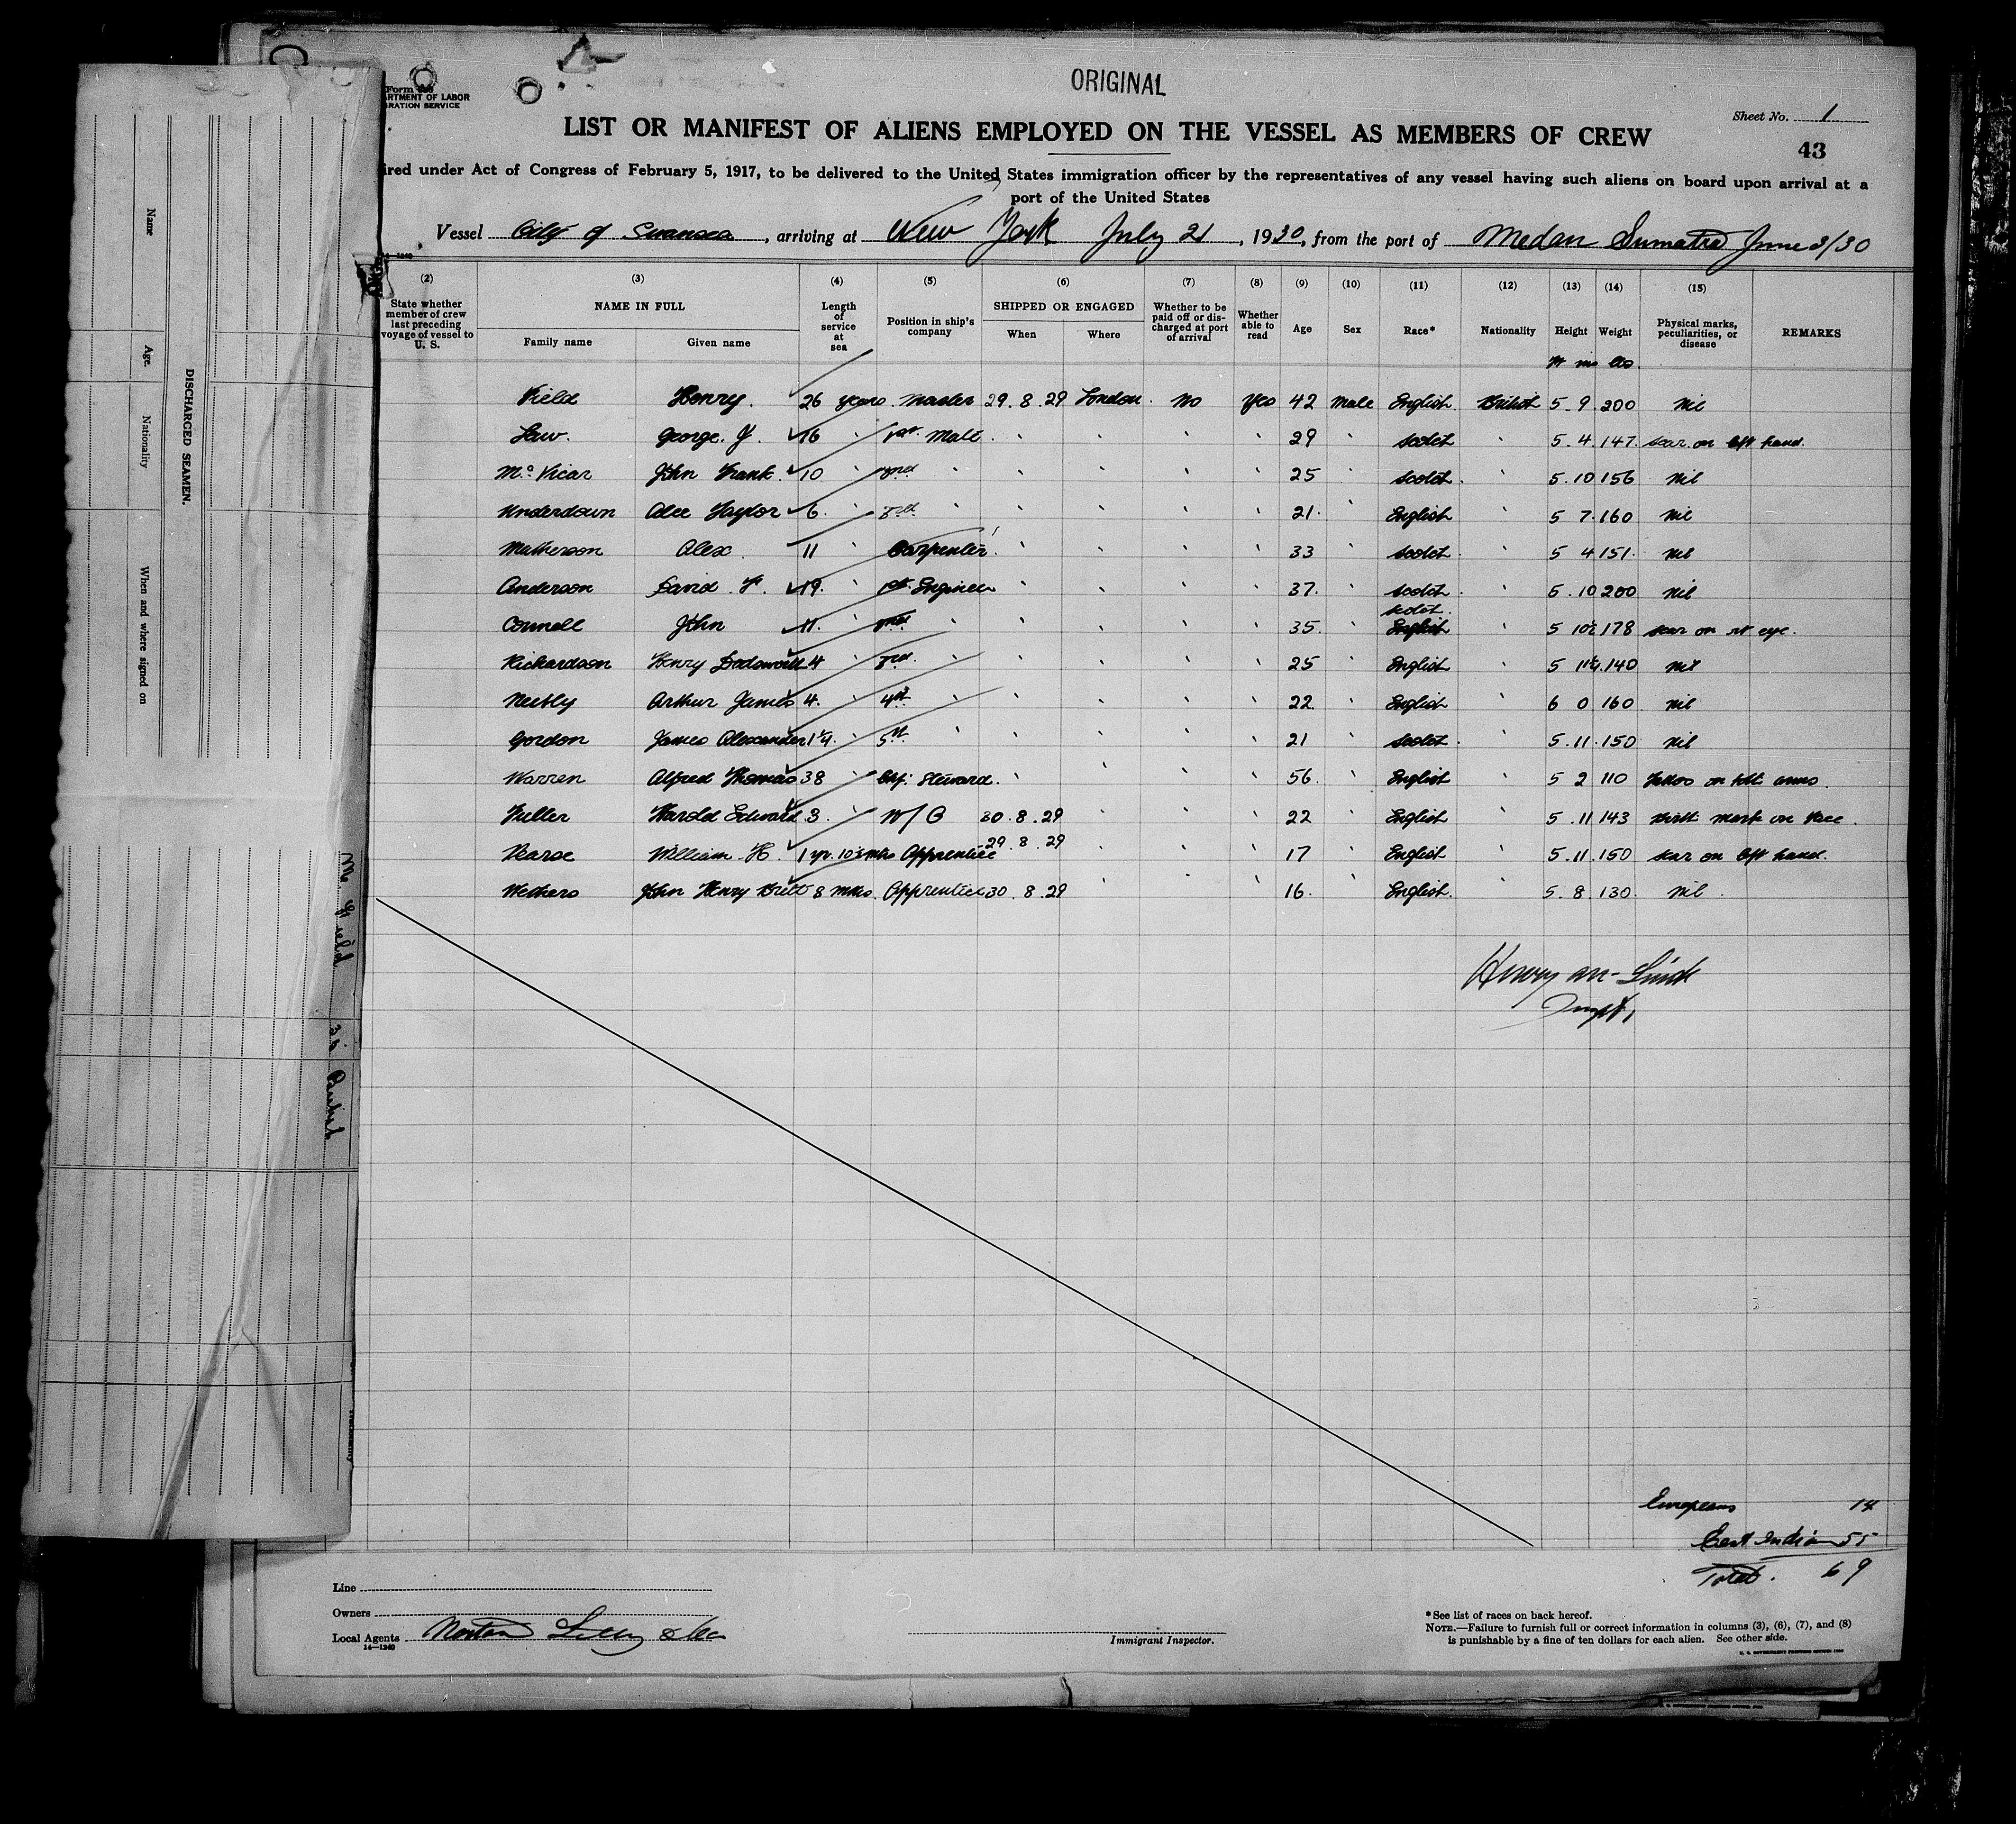 ORIGINAL
Form
ARTMENT OF LABOR
RATION SERVICE
Sheet No. 1
LIST OR MANIFEST OF ALIENS EMPLOYED ON THE VESSEL AS MEMBERS OF CREW
43
ired under Act of Congress of February 5, 1917, to be delivered to the United States immigration officer by the representatives of any vessel having such aliens on board upon arrival at a
port of the United States
Vessel City of Swansea, arriving at New York July 21, 1930, from the port of Medan Sumatra June 3/30
(2) (3) (4) (5) (6) (7) (8) (9) (10) (11) (12) (13) (14) (15)
State whether member of crew last preceding voyage of vessel to U. S. NAME IN FULL Family name Given name Length of service at sea Position in ship's company SHIPPED OR ENGAGED When Where Whether to be paid off or discharged at port of arrival Whether able to read Age Sex Race* Nationality Height Weight Physical marks, peculiarities, or disease REMARKS
ft ins lbs.
Field Henry. 26 years Master 29.8.29 London. No Yes 42 Male English British 5 9 200 Nil
Law. George. J. 16 " 1st Mate " " " " 29 " Scotch " 5 4 147 scar on left hand.
McVicar John Frank. 10 " 2nd " " " " " 25 " Scotch " 5 10 156 Nil
Underdown Alec Taylor 6. " 3rd " " " " " 21 " English " 5 7 160 Nil
Matherson Alex. 11 " Carpenter " " " " 33 " Scotch " 5 4 151 Nil
Anderson David F. 19. " 1st Engineer " " " " 37. " Scotch " 5 10 200 Nil
Connell John 11. " 2nd " " " " " 35. " Scotch. English " 5 10½ 178 scar on rt eye.
Richardson Henry Dodsworth 4 " 3rd. " " " " " 25 " English " 5 11¼ 140 Nil
Neebly Arthur James 4. " 4th " " " " " 22 " English " 6 0 160 Nil
Gordon James Alexander 1¼. " 5th " " " " " 21 " Scotch. " 5 11 150 Nil
Warren Alfred Thomas 38 " Chf: Steward. " " " " 56. " English " 5 2 110 Tattoo on both arms.
Fuller Harold Edward 3. " W/O 30.8.29 " " " 22 " English " 5 11 143 Birth mark on face.
Pearse William H. 1 yr. 10½ mths Apprentice 29.8.29 " " " 17 " English " 5 11 150 scar on left hand.
Withers John Henry Brett 8 mths. Apprentice 30.8.29 " " " 16. " English. " 5 8 130 Nil
Henry
Inspt,
Europeans 14
East Indian 55
Total. 69
Line
Owners
Local Agents Norton Lilly & Co
14—1240
Immigrant Inspector.
*See list of races on back hereof.
NOTE.—Failure to furnish full or correct information in columns (3), (6), (7), and (8)
is punishable by a fine of ten dollars for each alien. See other side.
DISCHARGED SEAMEN.
Name
Age.
Nationality
When and where signed on